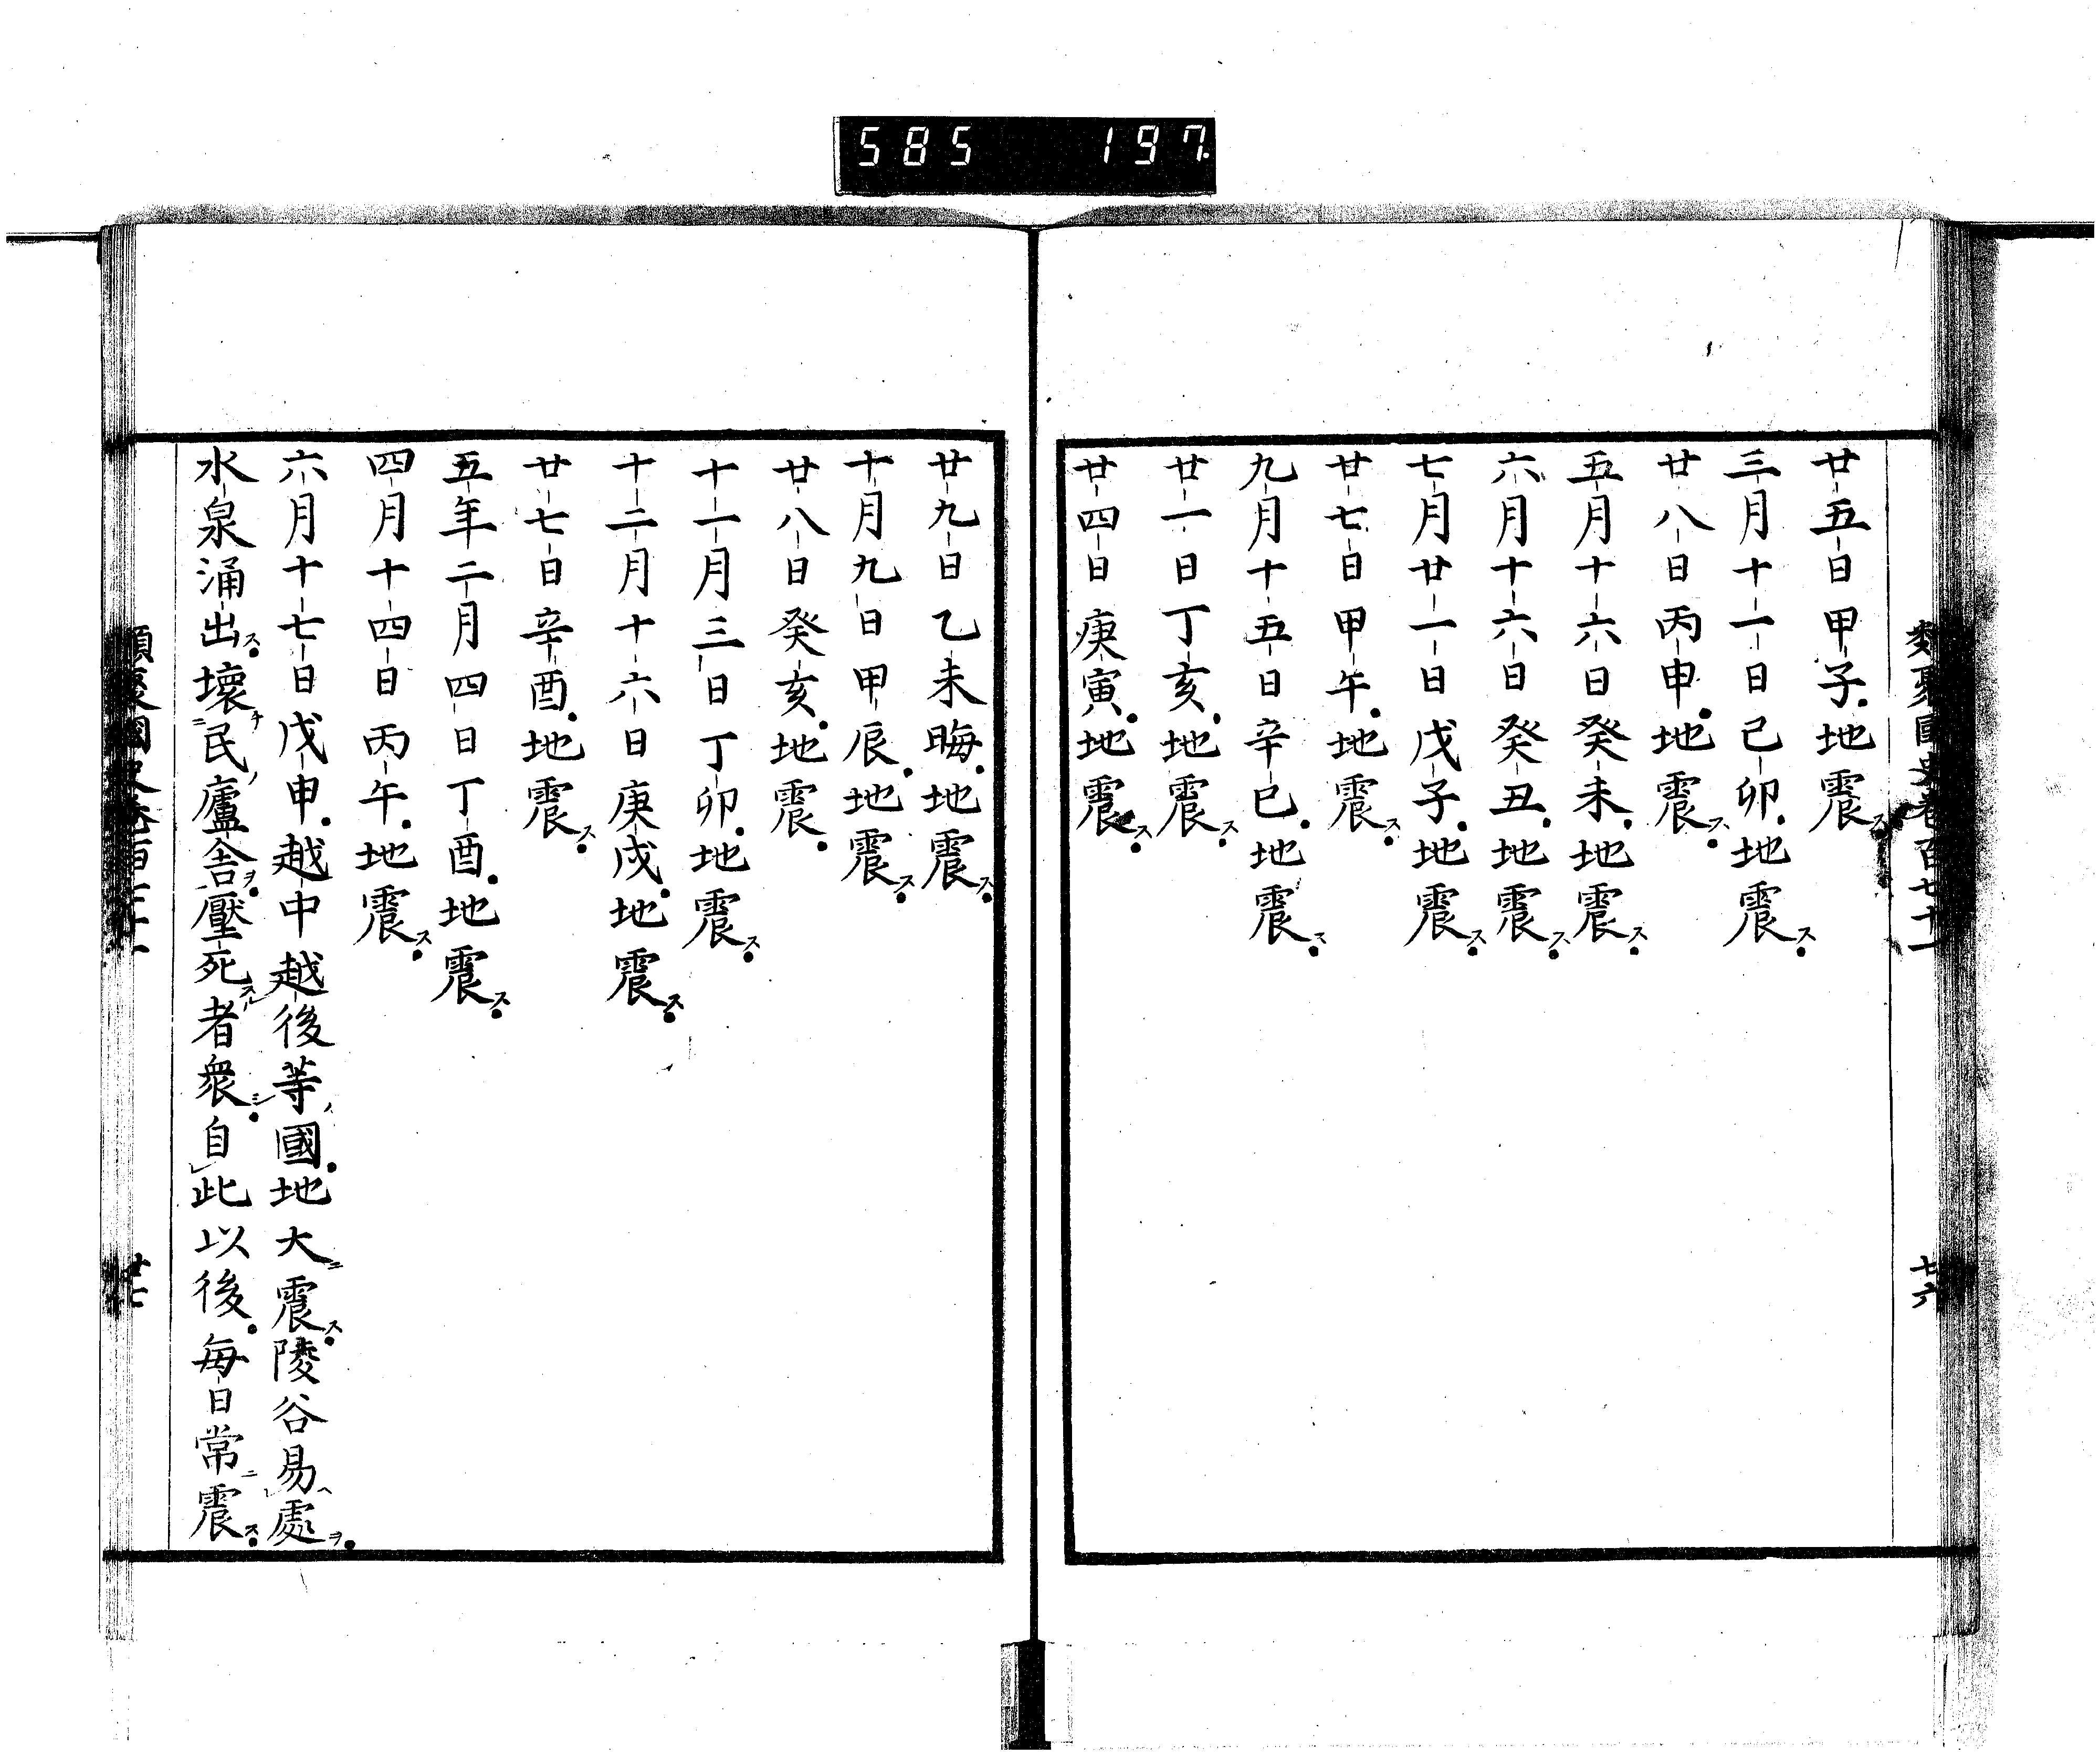 585 197
類聚國史卷百七十一
七六
廿五日甲子地震ス
三月十一日己卯地震ス
廿八日丙申地震ス
五月十六日癸未地震ス
六月十六日癸丑地震ス
七月廿一日戊子地震ス
廿七日甲午地震ス
九月十五日辛巳地震ス
廿一日丁亥地震ス
廿四日庚寅地震ス
廿九日乙未晦地震ス
十月九日甲辰地震ス
廿八日癸亥地震
十一月三日丁卯地震ス
十二月十六日庚戌地震ス
廿七日辛酉地震ス
五年二月四日丁酉地震ス
四月十四日丙午地震ス
六月十七日戊申越中越後等ノ國地大ニ震ス陵谷易ヘ處ヲ
水泉涌出ス壞チ民ノ廬舎ヲ壓死スル者衆シ自此以後每日常ニ震ス
類聚國史卷百七十一
廿七